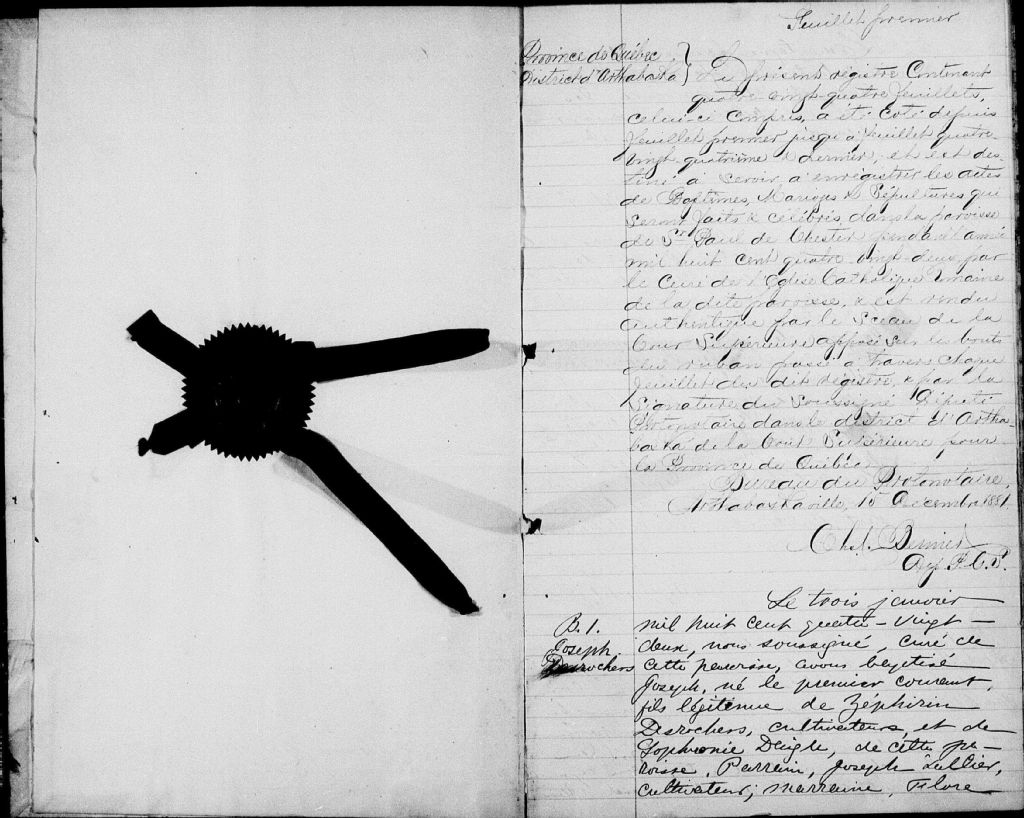 Feuillet premier
Province de Québec
District d'Arthabaska } Le présent régistre Contenant
quatre-vingt-quatre feuillets,
celui-ci compris, a été coté depuis
feuillet premier jusqu'à feuillet quatre-
vingt-quatrième & dernier, et est des-
tiné à servir à enrégistrer les actes
de Baptêmes, Mariages & Sépultures qui
seront faits & célébrés dans la paroisse
de St Paul de Chester pendant l'année
mil huit cent quatre-vingt-deux, par
le Curé de l'Eglise Catholique romaine
de la dite paroisse, & est rendu
authentique par le Sceau de la
Cour Supérieure apposé sur les bouts
du ruban passé à travers chaque
feuillet du dit régistre, & par la
Signature du Soussigné Député
Protonotaire dans le district d'Artha-
baska de la Cour Supérieure pour
la Province de Québec
Bureau du Protonotaire,
Arthabaskaville, 15 Décembre 1881.
Chs.
P. C. S.
Le trois janvier
B. 1. mil huit cent quatre-vingt-
Joseph deux, nous soussigné, curé de
Desrochers cette paroisse, avons baptisé
Joseph, né le premier courant,
fils légitime de Zéphirin
Desrochers, cultivateur, et de
Sophronie Daigle, de cette pa-
roisse, Parrain, Joseph
cultivateur; marraine, Flore